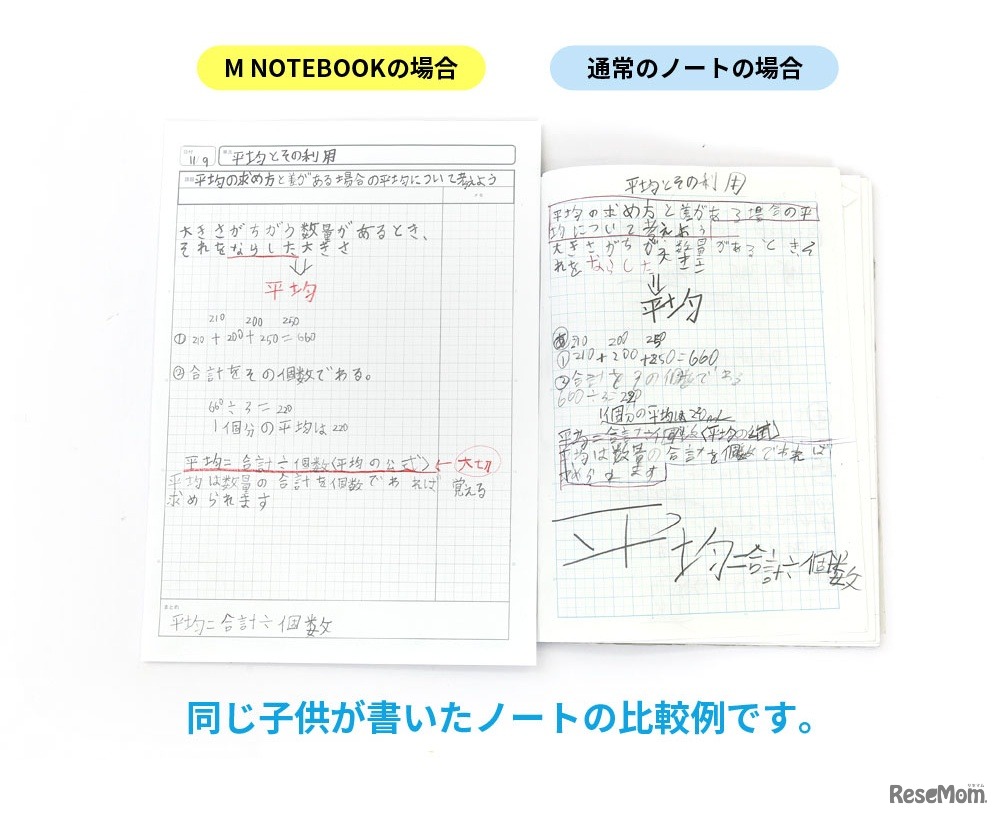 M NOTEBOOKの場合
通常のノートの場合
日付
11/9
単元
平均とその利用
課題
平均の求め方と差がある場合の平均について考えよう
大きさがちがう数量があるとき、
それをならした大きさ
平均
210 200 250
① 210+200+250=660
②合計をその個数でわる。
660÷3=220
1個分の平均は220
平均=合計÷個数(平均の公式)←大切
平均は数量の合計を個数でわれば
覚える
求められます
まとめ
平均=合計÷個数
平均とその利用
平均の求め方と差がある場合の平
均について考えよう
大きさがちがう数量があるとき、そ
れをならした大きさ
平均
210 200 250
①210+200+250=660
②合計をその個数でわる
660÷3=220
1個分の平均は220mL
平均=合計÷個数(平均の公式)
平均は数量の合計を個数でわれば
められます
平均=合計÷個数
同じ子供が書いたノートの比較例です。
リセマム
ReseMom.